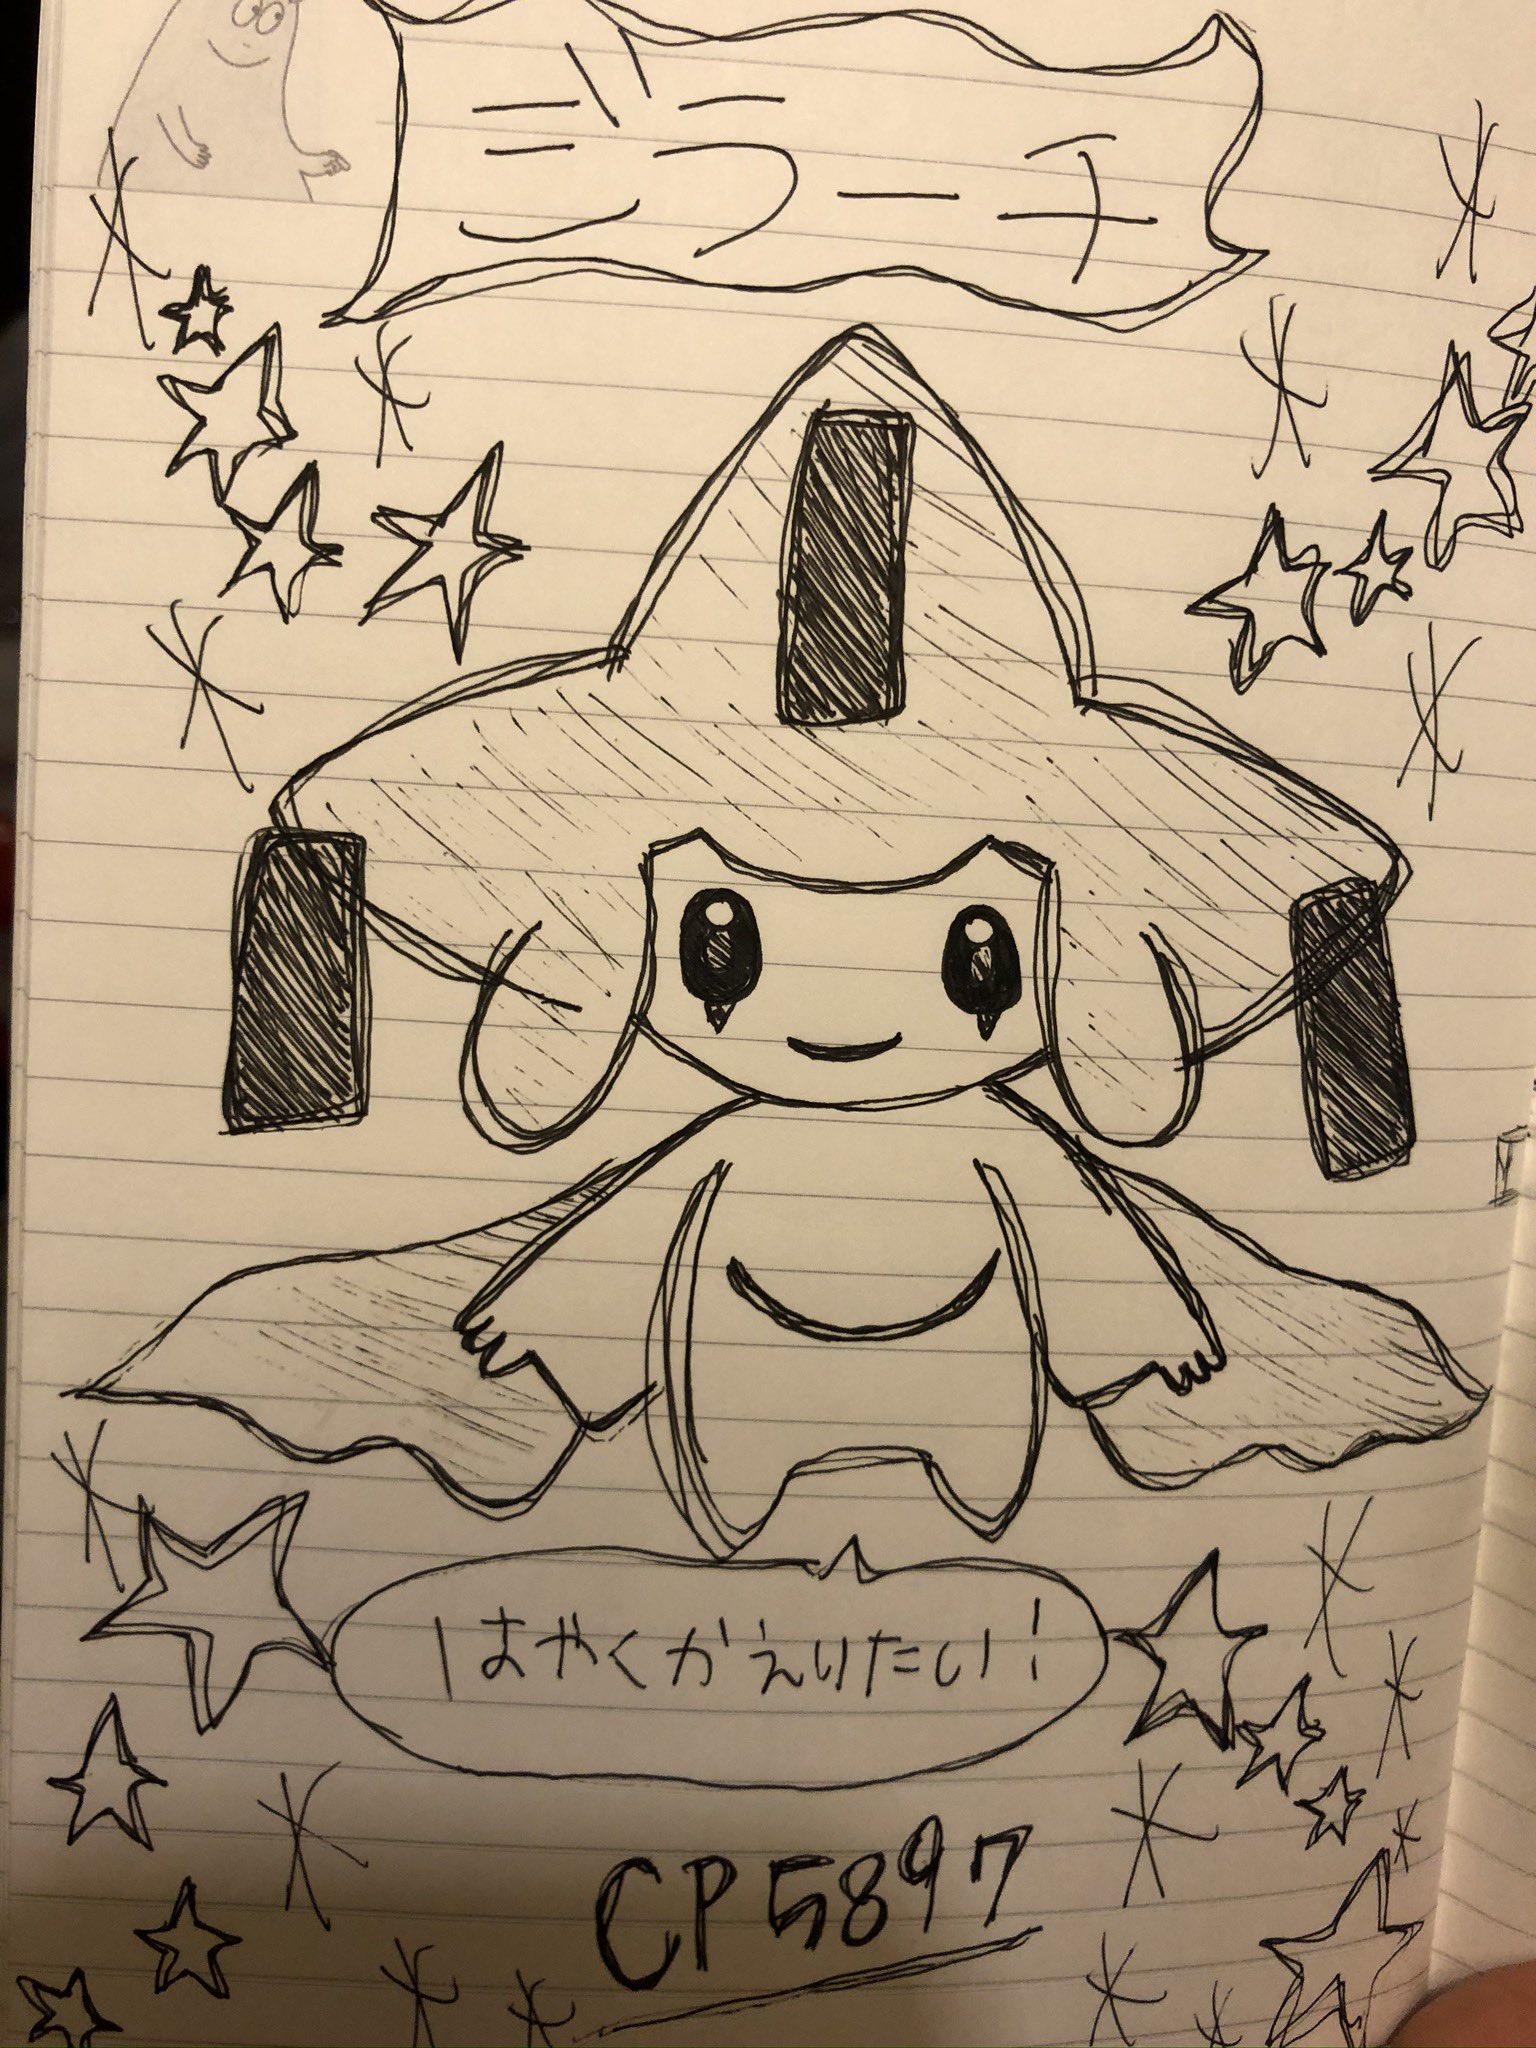 ジラーチ
はやくかえりたい!
CP5897